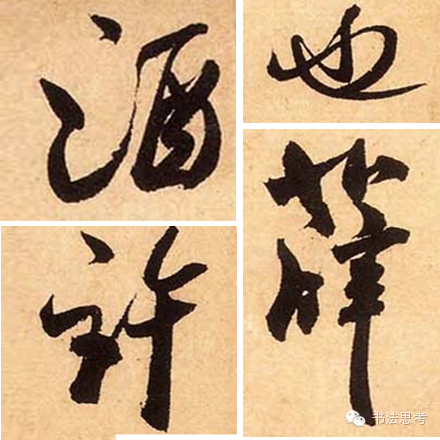 酒
也
許
薛
书法思考